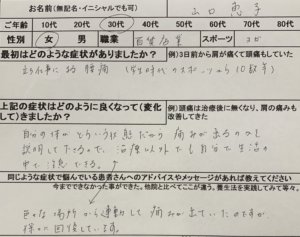 お名前(無記名・イニシャルでも可) 山口 恵子
ご年齢 10代 20代 30代 40代 50代 60代 70代 80代
性別 女 男 職業 百貨店業 スポーツ ヨガ
最初はどのような症状がありましたか? 例)3日前から肩が痛くて頭痛もしていた
立ち仕事による腰痛 (学生時代のスポーツから10数年)
上記の症状はどのように良くなって(変化して)きましたか? 例)頭痛は治療後に無くなり、肩の痛みも改善してきた
自分の体がどういう状態だから痛みが出るのかも
説明して下さるので、治療以外でも自分で生活の
中で注意できる。
同じような症状で悩んでいる患者さんへのアドバイスやメッセージがあれば教えてください
今までできなかった事ができた。他院と比べてここが違う。養生法を実践してみて等々。
色々な場所から連動して痛みが出ていたのですが、
徐々に回復している。